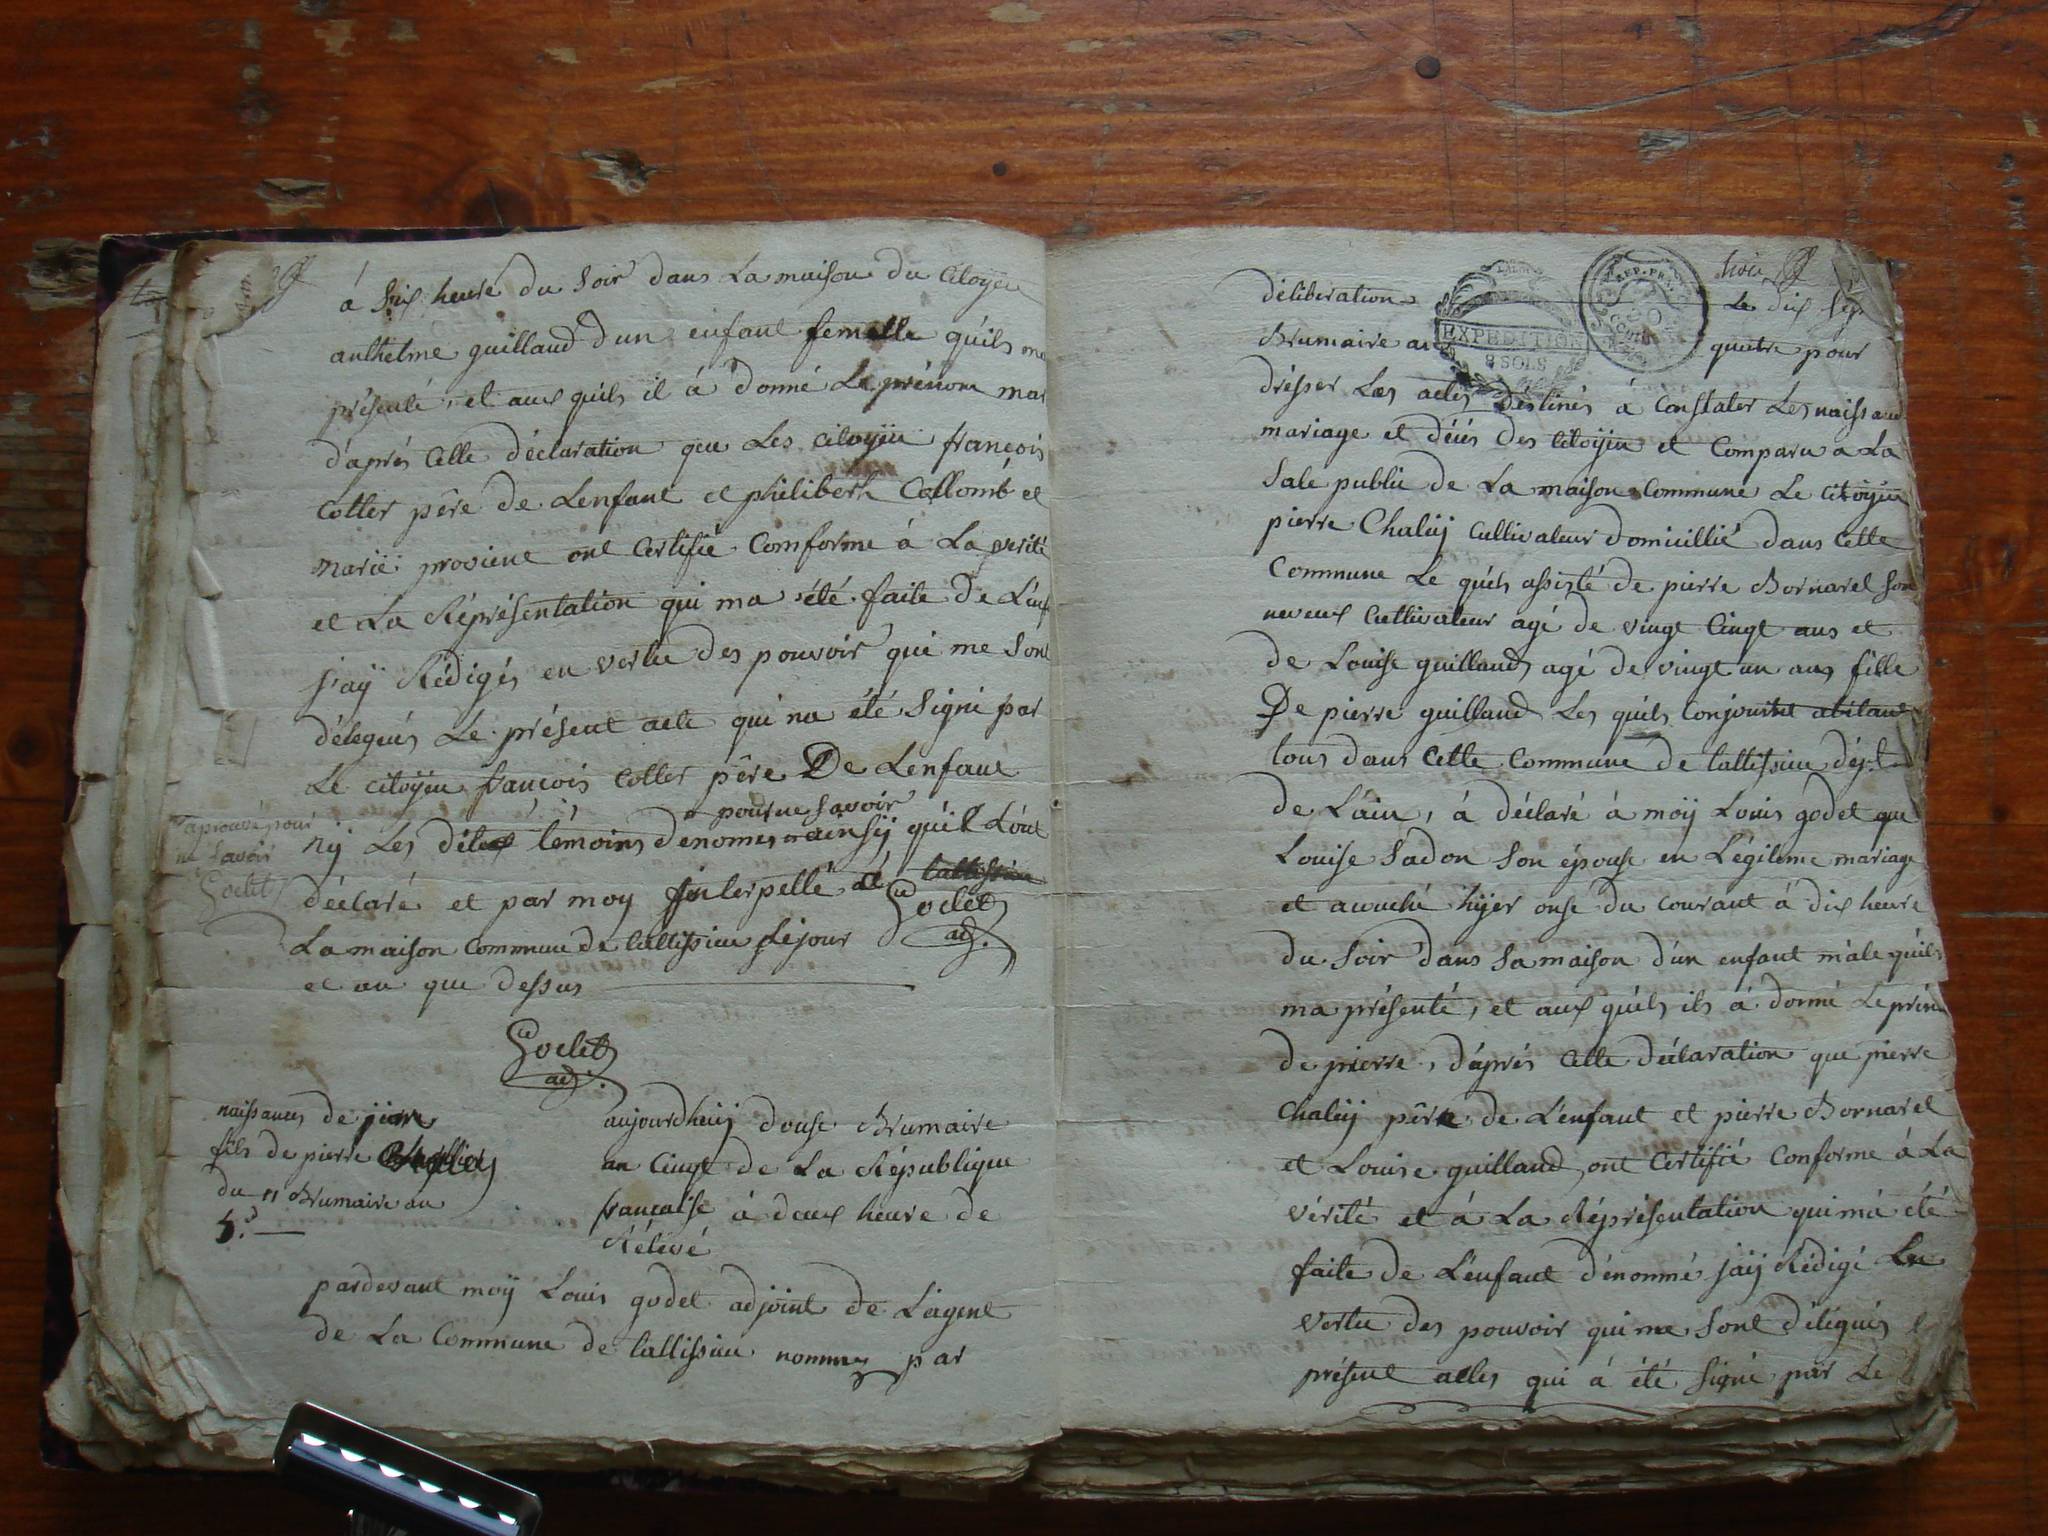 á six heure du soir dans La maison du Citoyen
anthelme guilland d'un enfant femelle qu'ils me
présenté, et aux quéls il á donné Le prénom mar
d'aprés Cette déclaration que Les citoÿin françois
Cotter pére de L'enfant et philibert Collomb et
marië prosient ont Certifié Comforme á La verité
et La Réprésentation qui ma été faite De L'enf
j'aÿ Rédigés en vertu des pouvoir qui me sont
délegués Le présent acte qui na été signé par
Le citoÿen françois Cotter pére De L'enfant
pour ne savoir
ny Les dites témoins denomes ainsÿ qu'il L'ont
aprouvé pour
ne savoir
Godet
déclaré et par moy Interpellé á
Godet
adj.
La maison Commune de Lattissieu Le jour
et an que dessus
Godet
adj.
naissances de pierre
fils de pierre
du 11 Brumaire an
5.e
aujourdhuÿ douse Brumaire
an Cinqt de La République
francaise á deux heure de
Rélevé
pardevant moÿ Louis godet adjoint de L'agent
de La Commune de Lattissieu nommez par
déliberation Le dix sept
EXPEDITION
8 SOLS
REP. FRA.
Brumaire an quatre pour
drésser Les actes déstinés á Constater Les naissanc
mariage et décés des Citoÿin et Comparu a La
Sale public de La maison Commune Le Citoÿin
pierre Chaluÿ Cultivateur domicillié dans Cette
Commune Le quéls assisté de pierre Bornarel Son
neveux Cultivateur agé de vingt Cinqt ans et
de Louise guilland agé de vingt un ans fille
De pierre guilland Les quéls Conjointet abitant
tous dans Cette Commune de Lattissieu dépt
de L'ain, á déclaré á moÿ Louis godet que
Louise Sadon Son épouse en Légiteme mariage
et acouché hÿer onse du Courant á dix heure
du soir dans sa maison d'un enfant mâle quéils
ma présenté, et aux quéls ils á donné Le prén
de pierre, d'aprés Cette déclaration que pierre
Chaluÿ pére de L'enfant et pierre Bornarel
et Louise guilland ont Certifié Conforme á La
vérité et á La Réprésentation qui má été
faite de L'enfant dénommé jaÿ Rédigé En
vertu des pouvoir qui me sont délegués
présent actes qui á été signé par Le